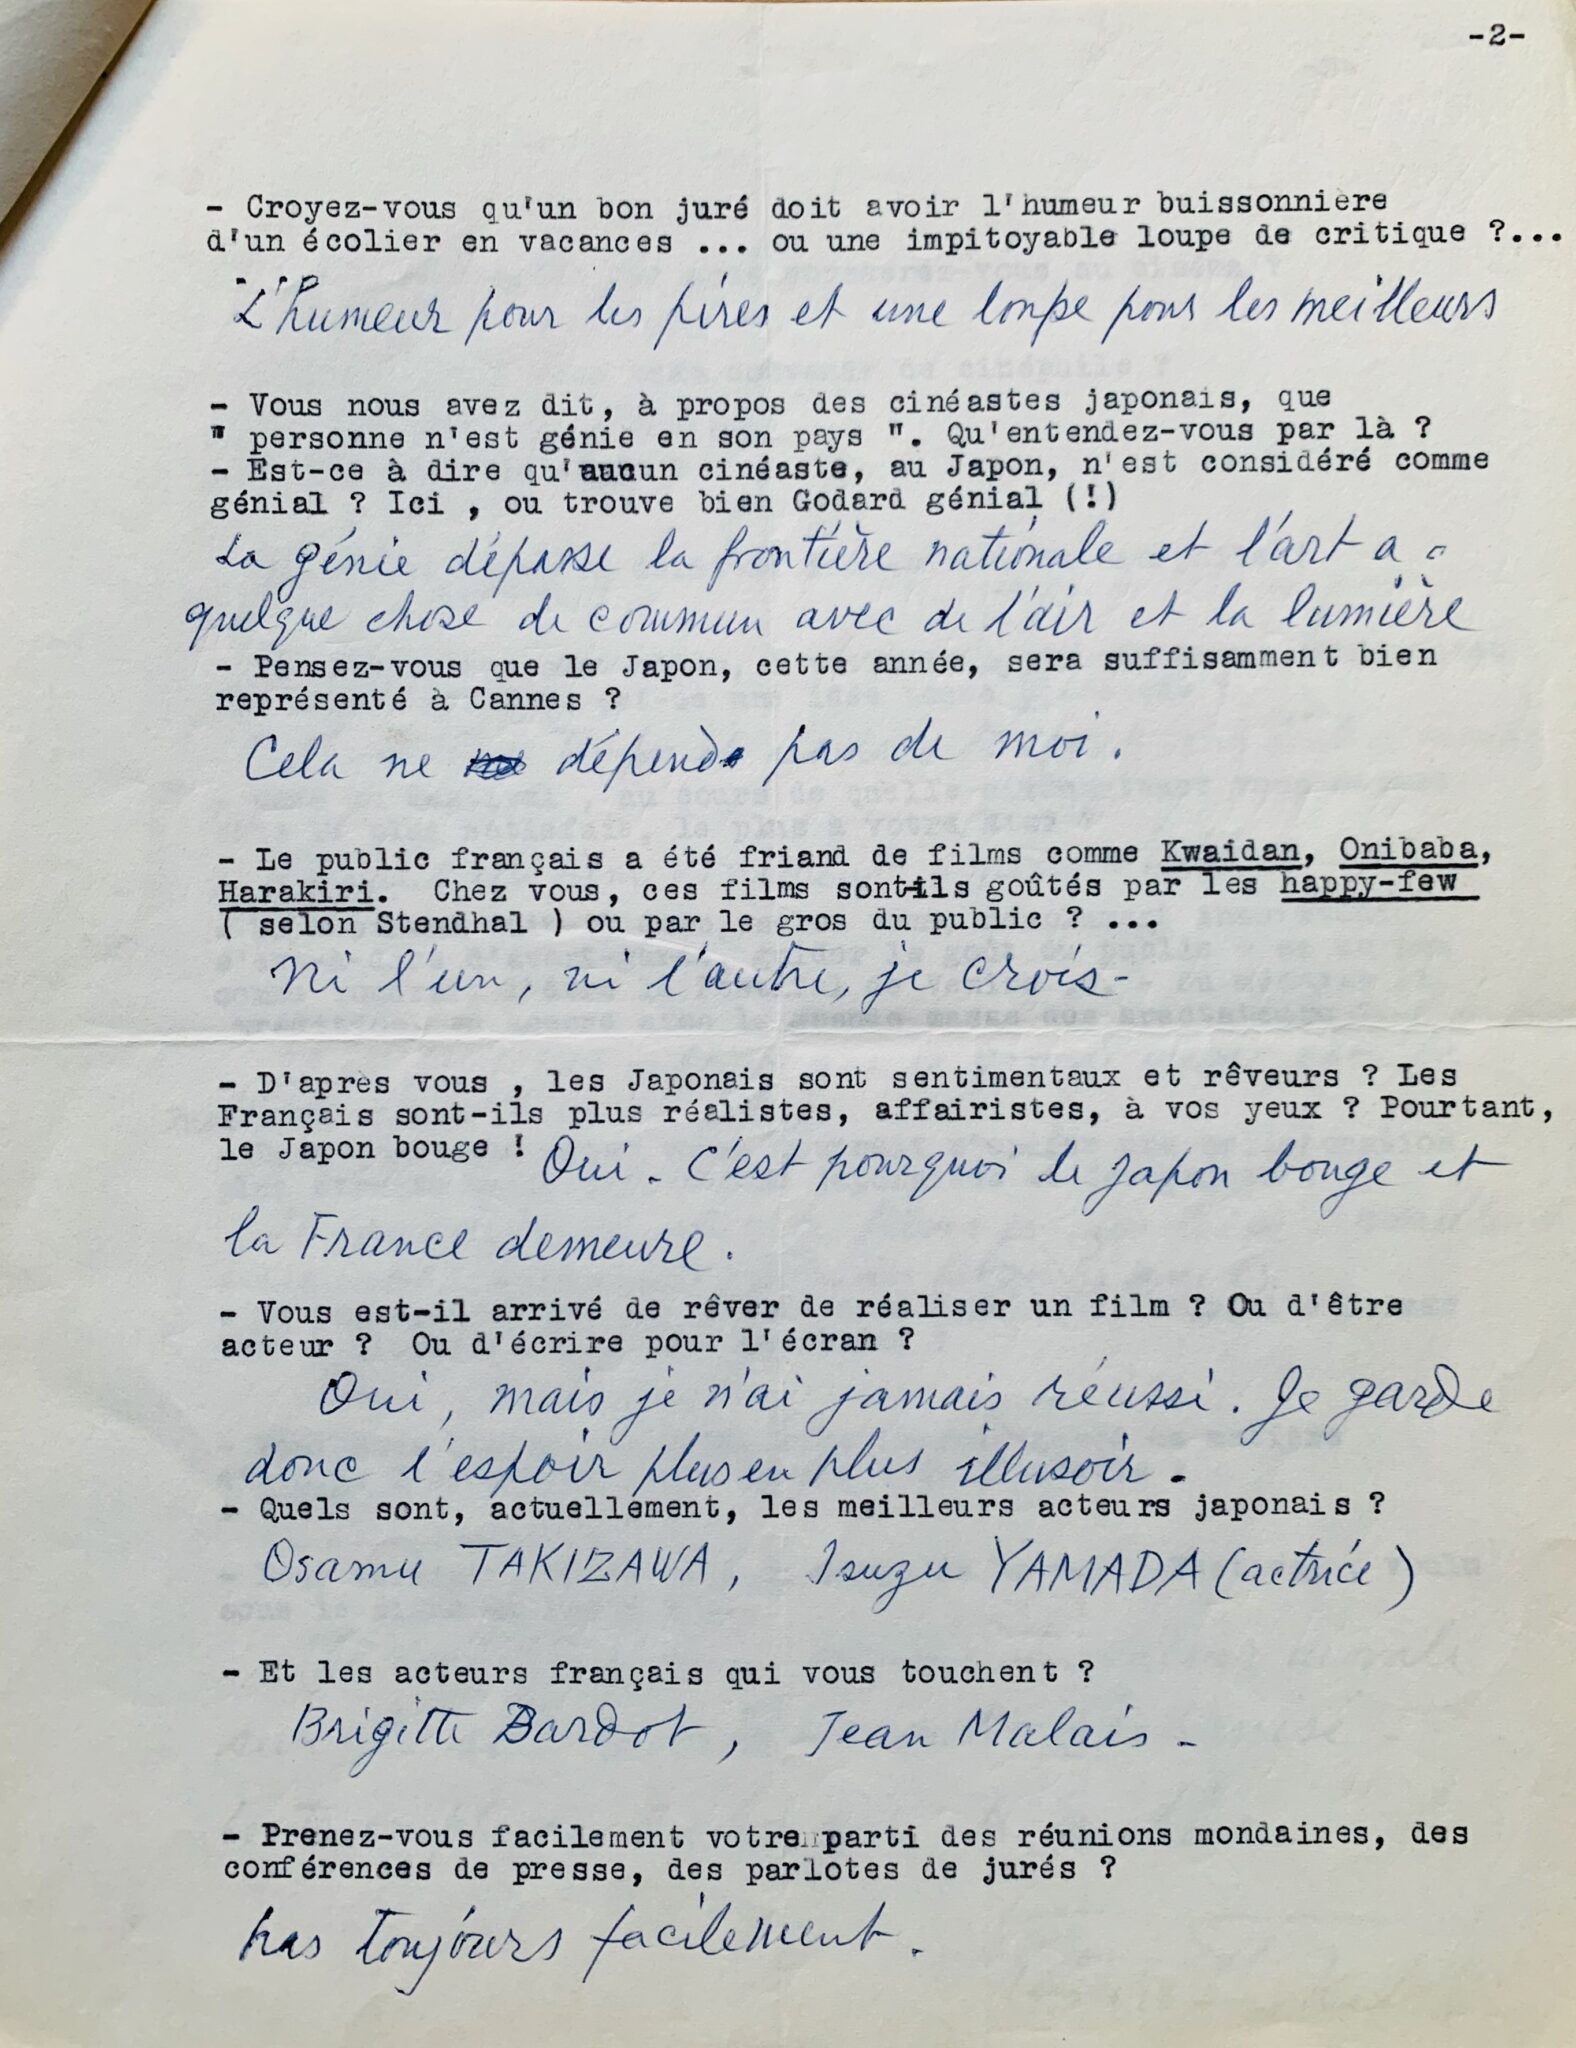 -2-
- Croyez-vous qu'un bon juré doit avoir l'humeur buissonnière
d'un écolier en vacances ... ou une impitoyable loupe de critique ?...
L'humeur pour les pires et une loupe pour les meilleurs
- Vous nous avez dit, à propos des cinéastes japonais, que
" personne n'est génie en son pays ". Qu'entendez-vous par là ?
- Est-ce à dire qu'aucun cinéaste, au Japon, n'est considéré comme
génial ? Ici , ou trouve bien Godard génial (!)
La génie dépasse la frontière nationale et l'art a
quelque chose de commun avec de l'air et la lumière
- Pensez-vous que le Japon, cette année, sera suffisamment bien
représenté à Cannes ?
Cela ne dépend pas de moi.
- Le public français a été friand de films comme Kwaidan, Onibaba,
Harakiri. Chez vous, ces films sont-ils goûtés par les happy-few
( selon Stendhal ) ou par le gros du public ? ...
Ni l'un, ni l'autre, je crois-
- D'après vous , les Japonais sont sentimentaux et rêveurs ? Les
Français sont-ils plus réalistes, affairistes, à vos yeux ? Pourtant,
le Japon bouge ! Oui. C'est pourquoi le Japon bouge et
la France demeure.
- Vous est-il arrivé de rêver de réaliser un film ? Ou d'être
acteur ? Ou d'écrire pour l'écran ?
Oui, mais je n'ai jamais réussi. Je garde
donc l'espoir plus en plus illusoir.
- Quels sont, actuellement, les meilleurs acteurs japonais ?
Osamu TAKIZAWA, Isuzu YAMADA (actrice)
- Et les acteurs français qui vous touchent ?
Brigitte Bardot, Jean Malais -
- Prenez-vous facilement votre parti des réunions mondaines, des
conférences de presse, des parlotes de jurés ?
Pas toujours facilement.